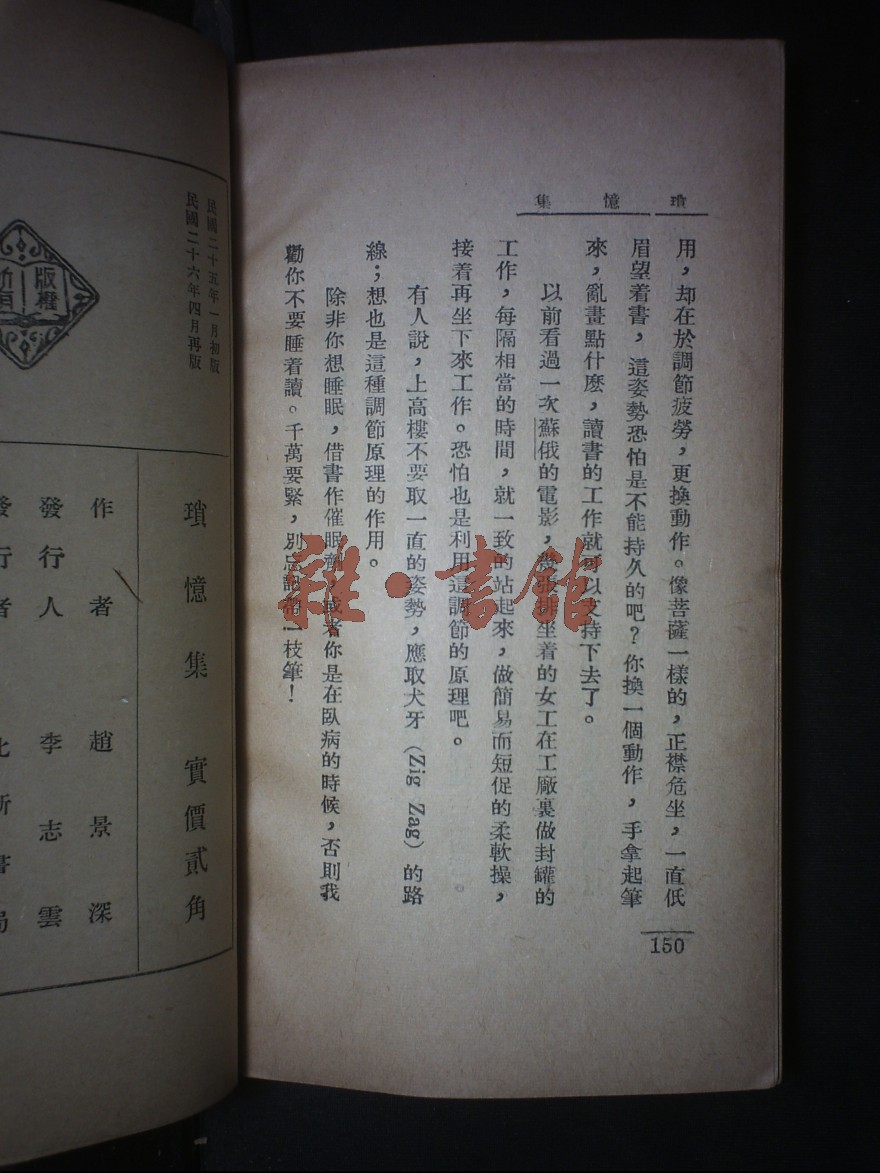 瑣憶集
用，却在於調節疲勞，更換動作。像菩薩一樣的，正襟危坐，一直低
眉望着書，這姿勢恐怕是不能持久的吧？你換一個動作，手拿起筆
來，亂畫點什麽，讀書的工作就可以支持下去了。
以前看過一次蘇俄的電影，幾張排坐着的女工在工廠裏做封罐的
工作，每隔相當的時間，就一致的站起來，做簡易而短促的柔軟操，
接着再坐下來工作。恐怕也是利用這調節的原理吧。
有人說，上高樓不要取一直的姿勢，應取犬牙（Zig Zag）的路
線；想也是這種調節原理的作用。
除非你想睡眠，借書作催眠劑，或者你是在臥病的時候，否則我
勸你不要睡着讀。千萬要緊，別忘記帶一枝筆！
150
雜·書館
民國二十五年一月初版
民國二十六年四月再版
版權
所有
瑣憶集 實價貳角
作者 趙景深
發行人 李志雲
發行者 北新書局